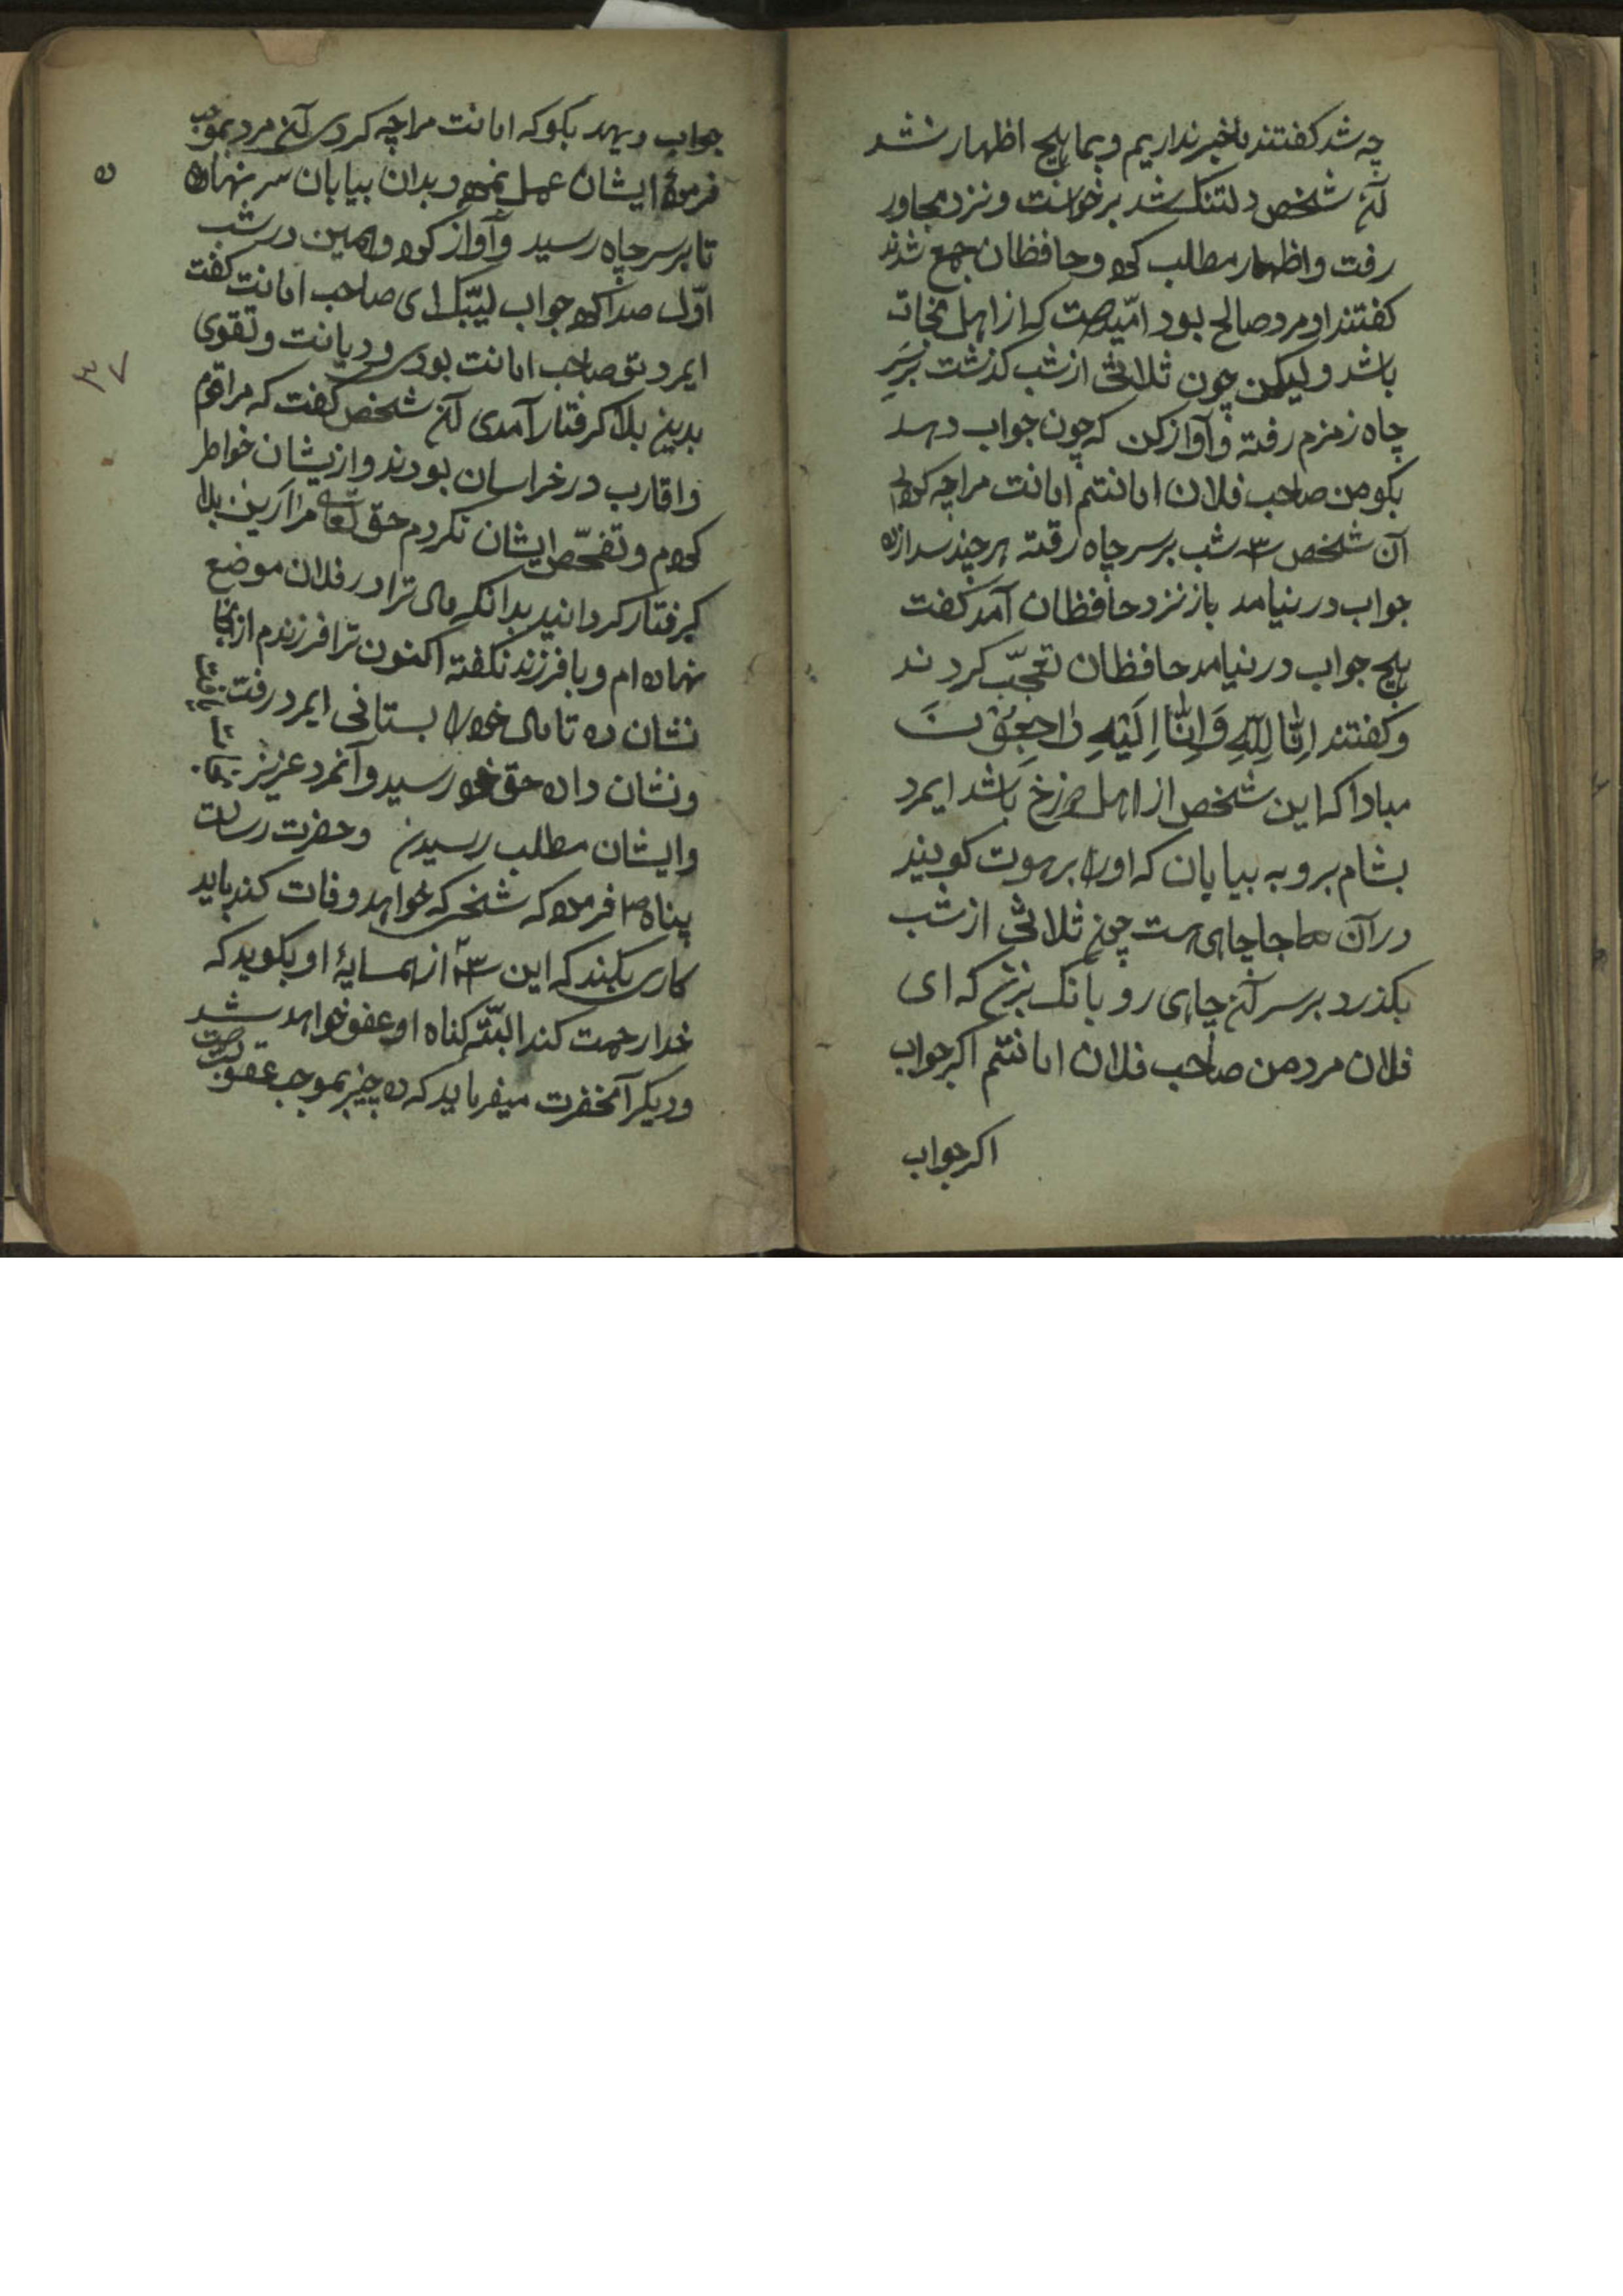 چه شد کفتند ما خبر نداریم و بما هیچ اظهار نشد
آن شخص دلتنک شد برخواست و نزد مجاور
رفت و اظهار مطلب کرد و حافظان جمع شدند
کفتند او مرد صالح بود امّید هست که از اهل نجات
باشد و لیکن چون ثلاثی از شب کذشت بر سَرِ
چاه زمزم رفته و آواز کن که چون جواب دهد
بکو من صاحب فلان امانتم امانت مرا چه کردی
آن شخص ۳ شب بر سر چاه رفته هر چند سدا زد
جواب در نیامد باز نزد حافظان آمد کفت
هیچ جواب در نیامد حافظان تعجّب کردند
و کفتند اِنّا لِلّهِ وَ اِنّا اِلَیْهِ راجِعُوْنَ
مبادا که این شخص از اهل دوزخ باشد ایمرد
بشام برو به بیابان که او را برهوت کویند
در آن جا چاهی هست چون ثلاثی از شب
بکذرد بر سر آن چاهی رو بانک بزن که ای
فلان مرد من صاحب فلان امانتم اکر جواب
اکر جواب
جواب دیهد بکو که امانت مرا چه کردی آن مرد بموجب
فرموده ایشان عمل نموده و بدان بیابان سر نهاده
تا بر سر چاه رسید و آواز کرد و همین در شب
اوّل صدا کرد جواب لبّیک ای صاحب امانت کفت
ایمرد تو صاحب امانت بودی و دیانت و تقوی
بدین بلا کرفتار آمدی آن شخص کفت که مرا قوم
و اقارب در خراسان بودند و ازیشان خواطر
کردم و تفحّص ایشان نکردم حقّ تعالی مرا ازین بلا
کرفتار کردانید بدانکه مال ترا در فلان موضع
نهاده ام و با فرزند نکفته اکنون ترا فرزندم از آنجا
نشان ده تا مال خود را بستانی ایمرد رفت
و نشان داده حق خود رسید و آنمرد عزیز
و ایشان مطلب رسیدن و حضرت رسالت
پناه ص فرموده که شخصی که خواهد وفات کند باید
کاری بکند که این ۳ از همسایهٔ او بکوید که
خدا رحمت کند البتّه کناه او عفو خواهد شد
و دیکر آنحضرت میفرماید که ده چیز بموجب عقوبت
۳۷